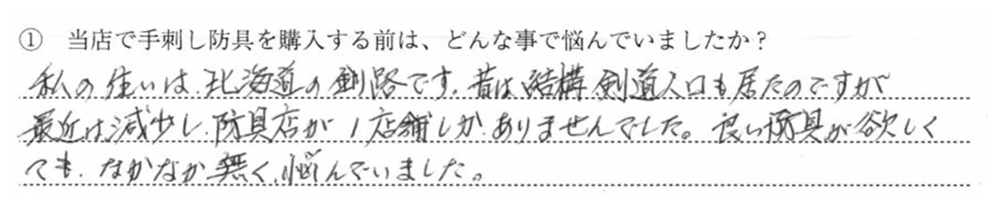 ① 当店で手刺し防具を購入する前は、どんな事で悩んでいましたか？
私の住いは、北海道の釧路です。昔は、結構、剣道人口も居たのですが
最近は減少し、防具店が1店舗しか、ありませんでした。良い防具が欲しく
ても、なかなか無く、悩んでいました。